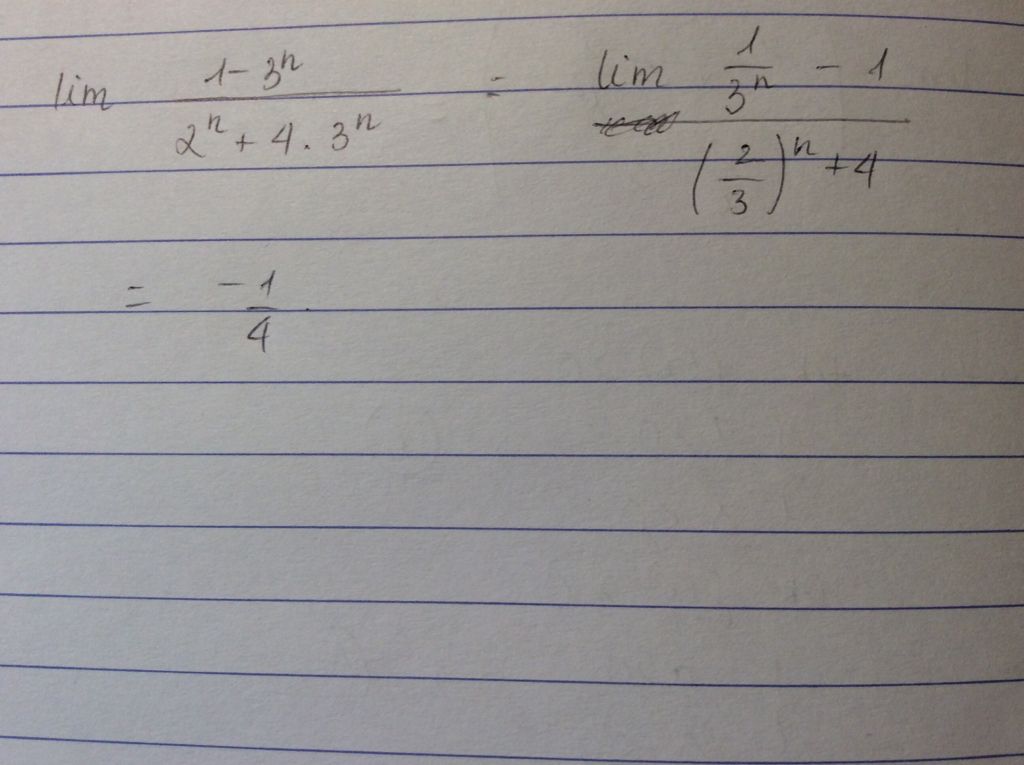 lim (1 - 3^n) / (2^n + 4 . 3^n) = lim (1/3^n - 1) / ((2/3)^n + 4)
= -1/4.